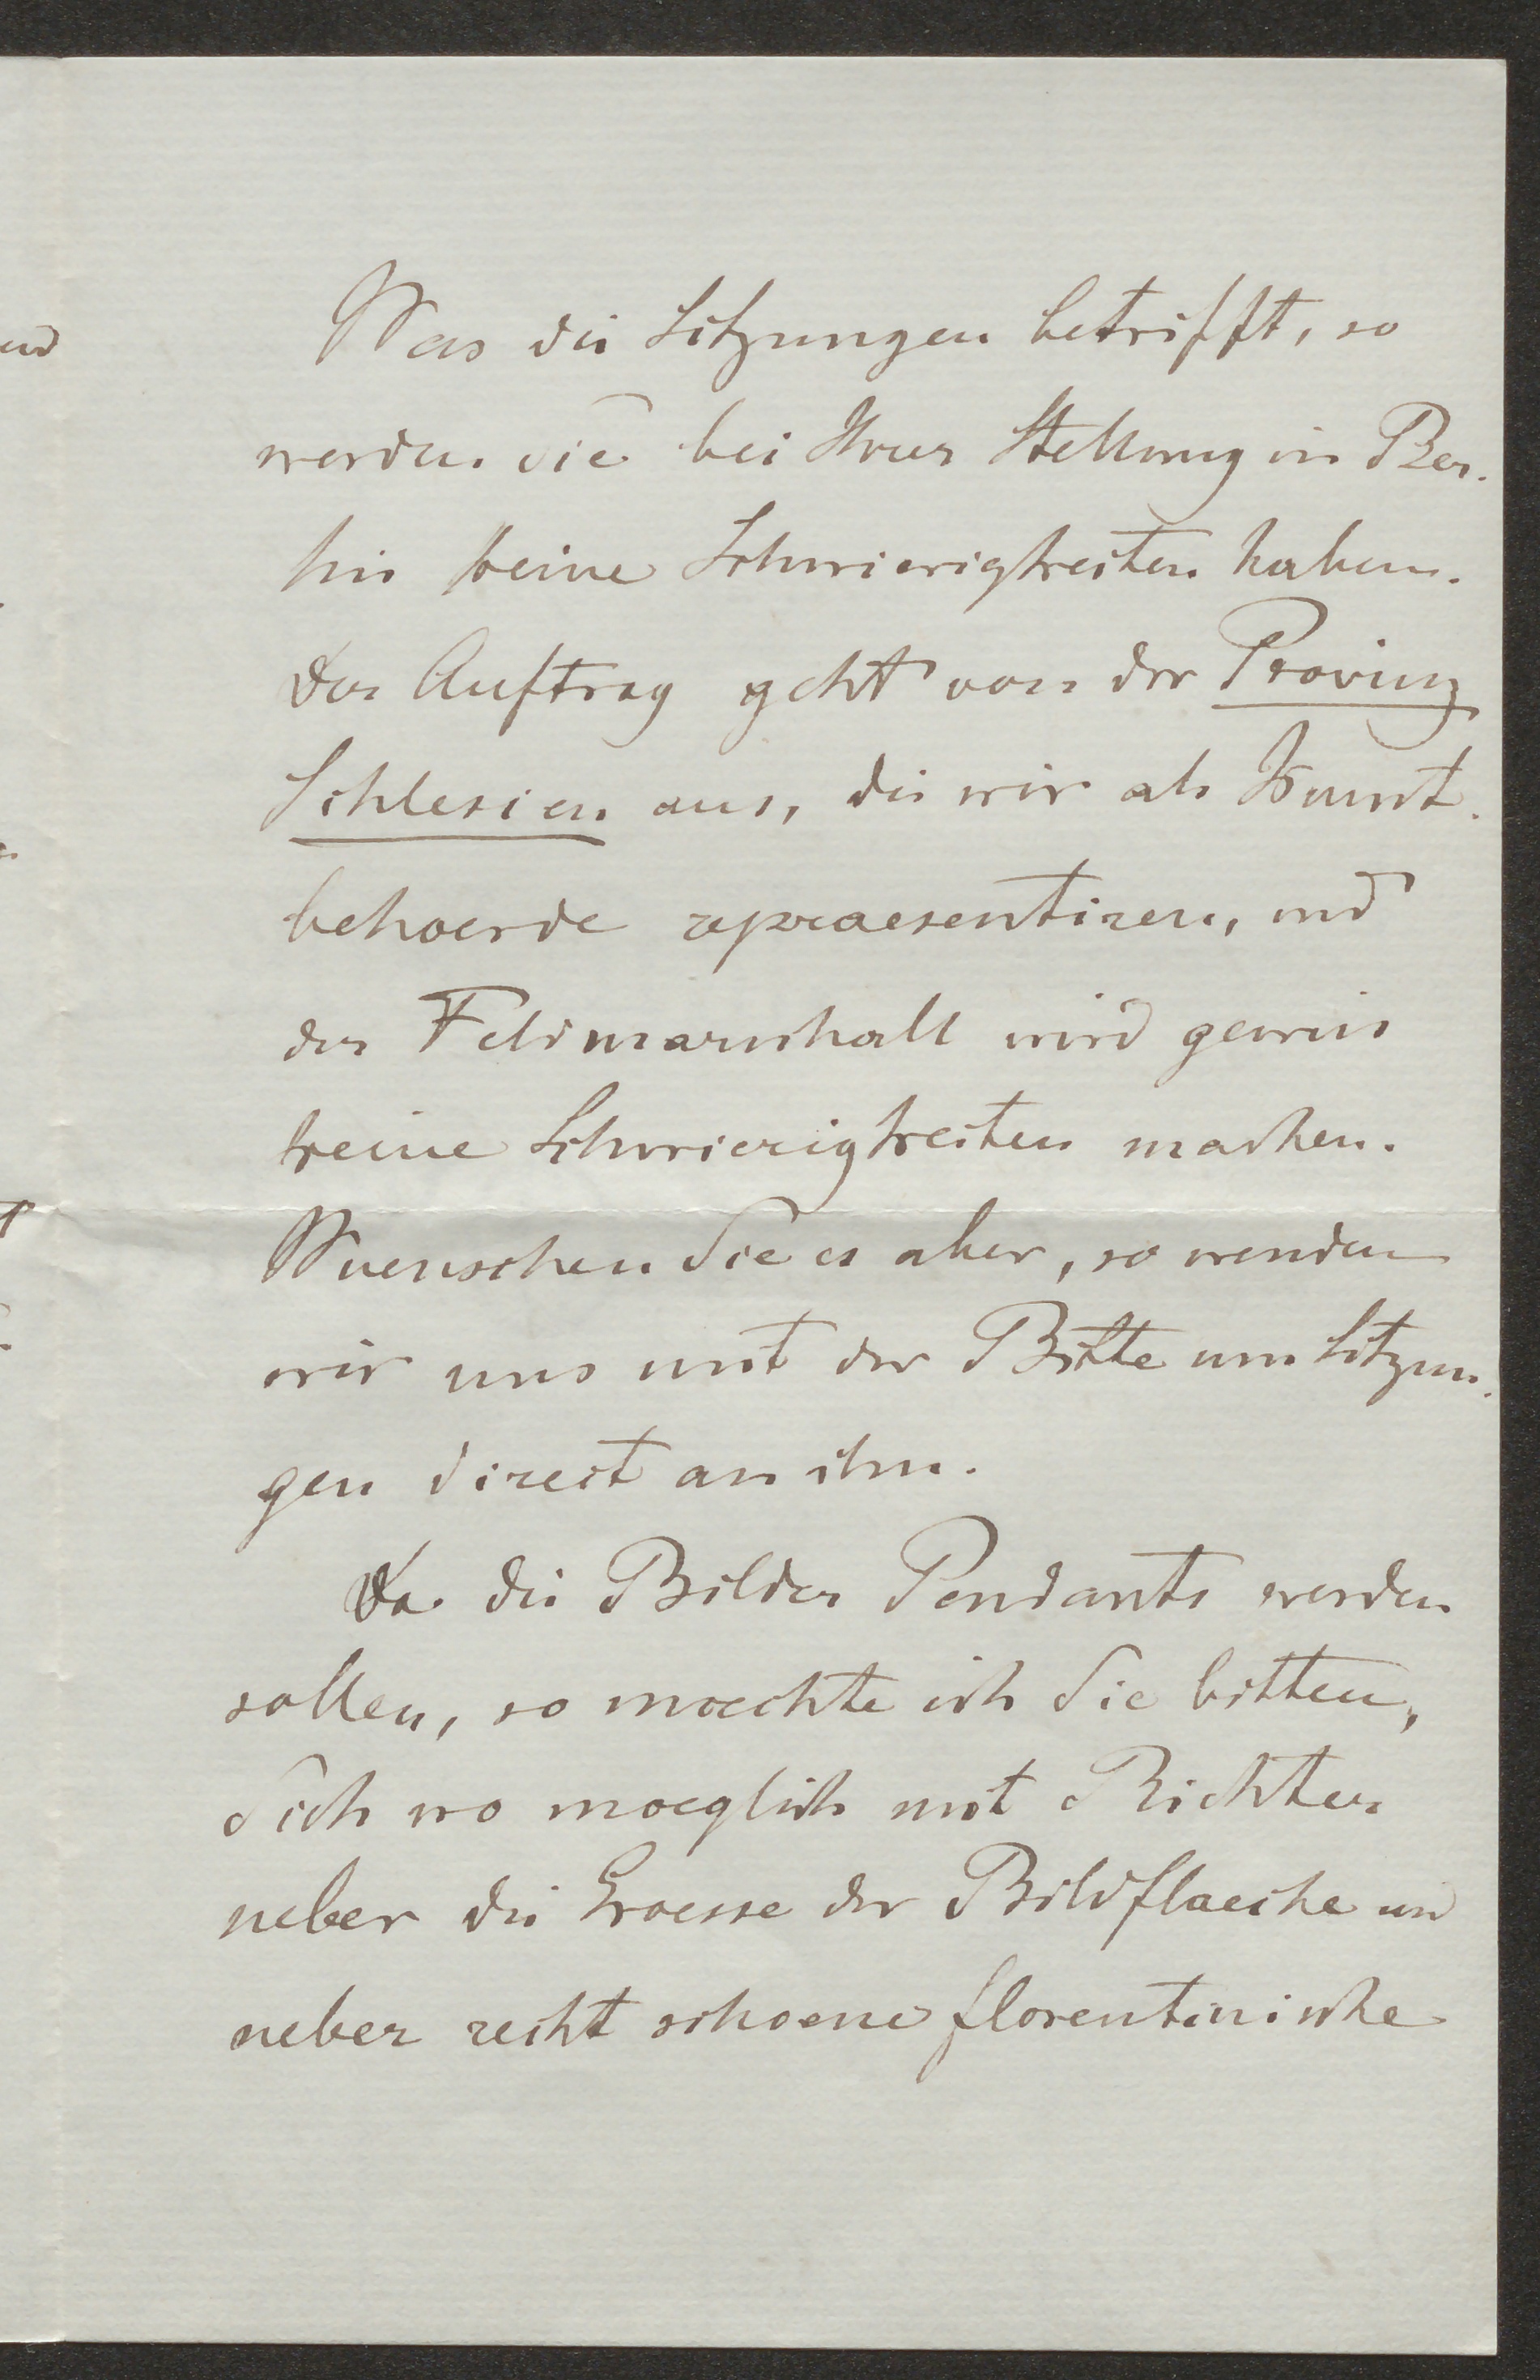 Was die Sitzungen betrifft, so
werden Sie bei Ihrer Stellung in Ber-
lin keine Schwierigkeiten haben.
Der Auftrag geht von der Provinz
Schlesien aus, die wir als Kunst-
behoerde repraesentiren, und
der Feldmarschall wird gewis
keine Schwierigkeiten machen.
Wuenschen Sie es aber, so wenden
wir uns mit der Bitte um Sitzun-
gen direct an ihn.
Da die Bilder Pendants werden
sollen, so moechte ich Sie bitten,
Sich wo moeglich mit Richter
ueber die Groesse der Bildflaeche und
ueber recht schoene florentinische